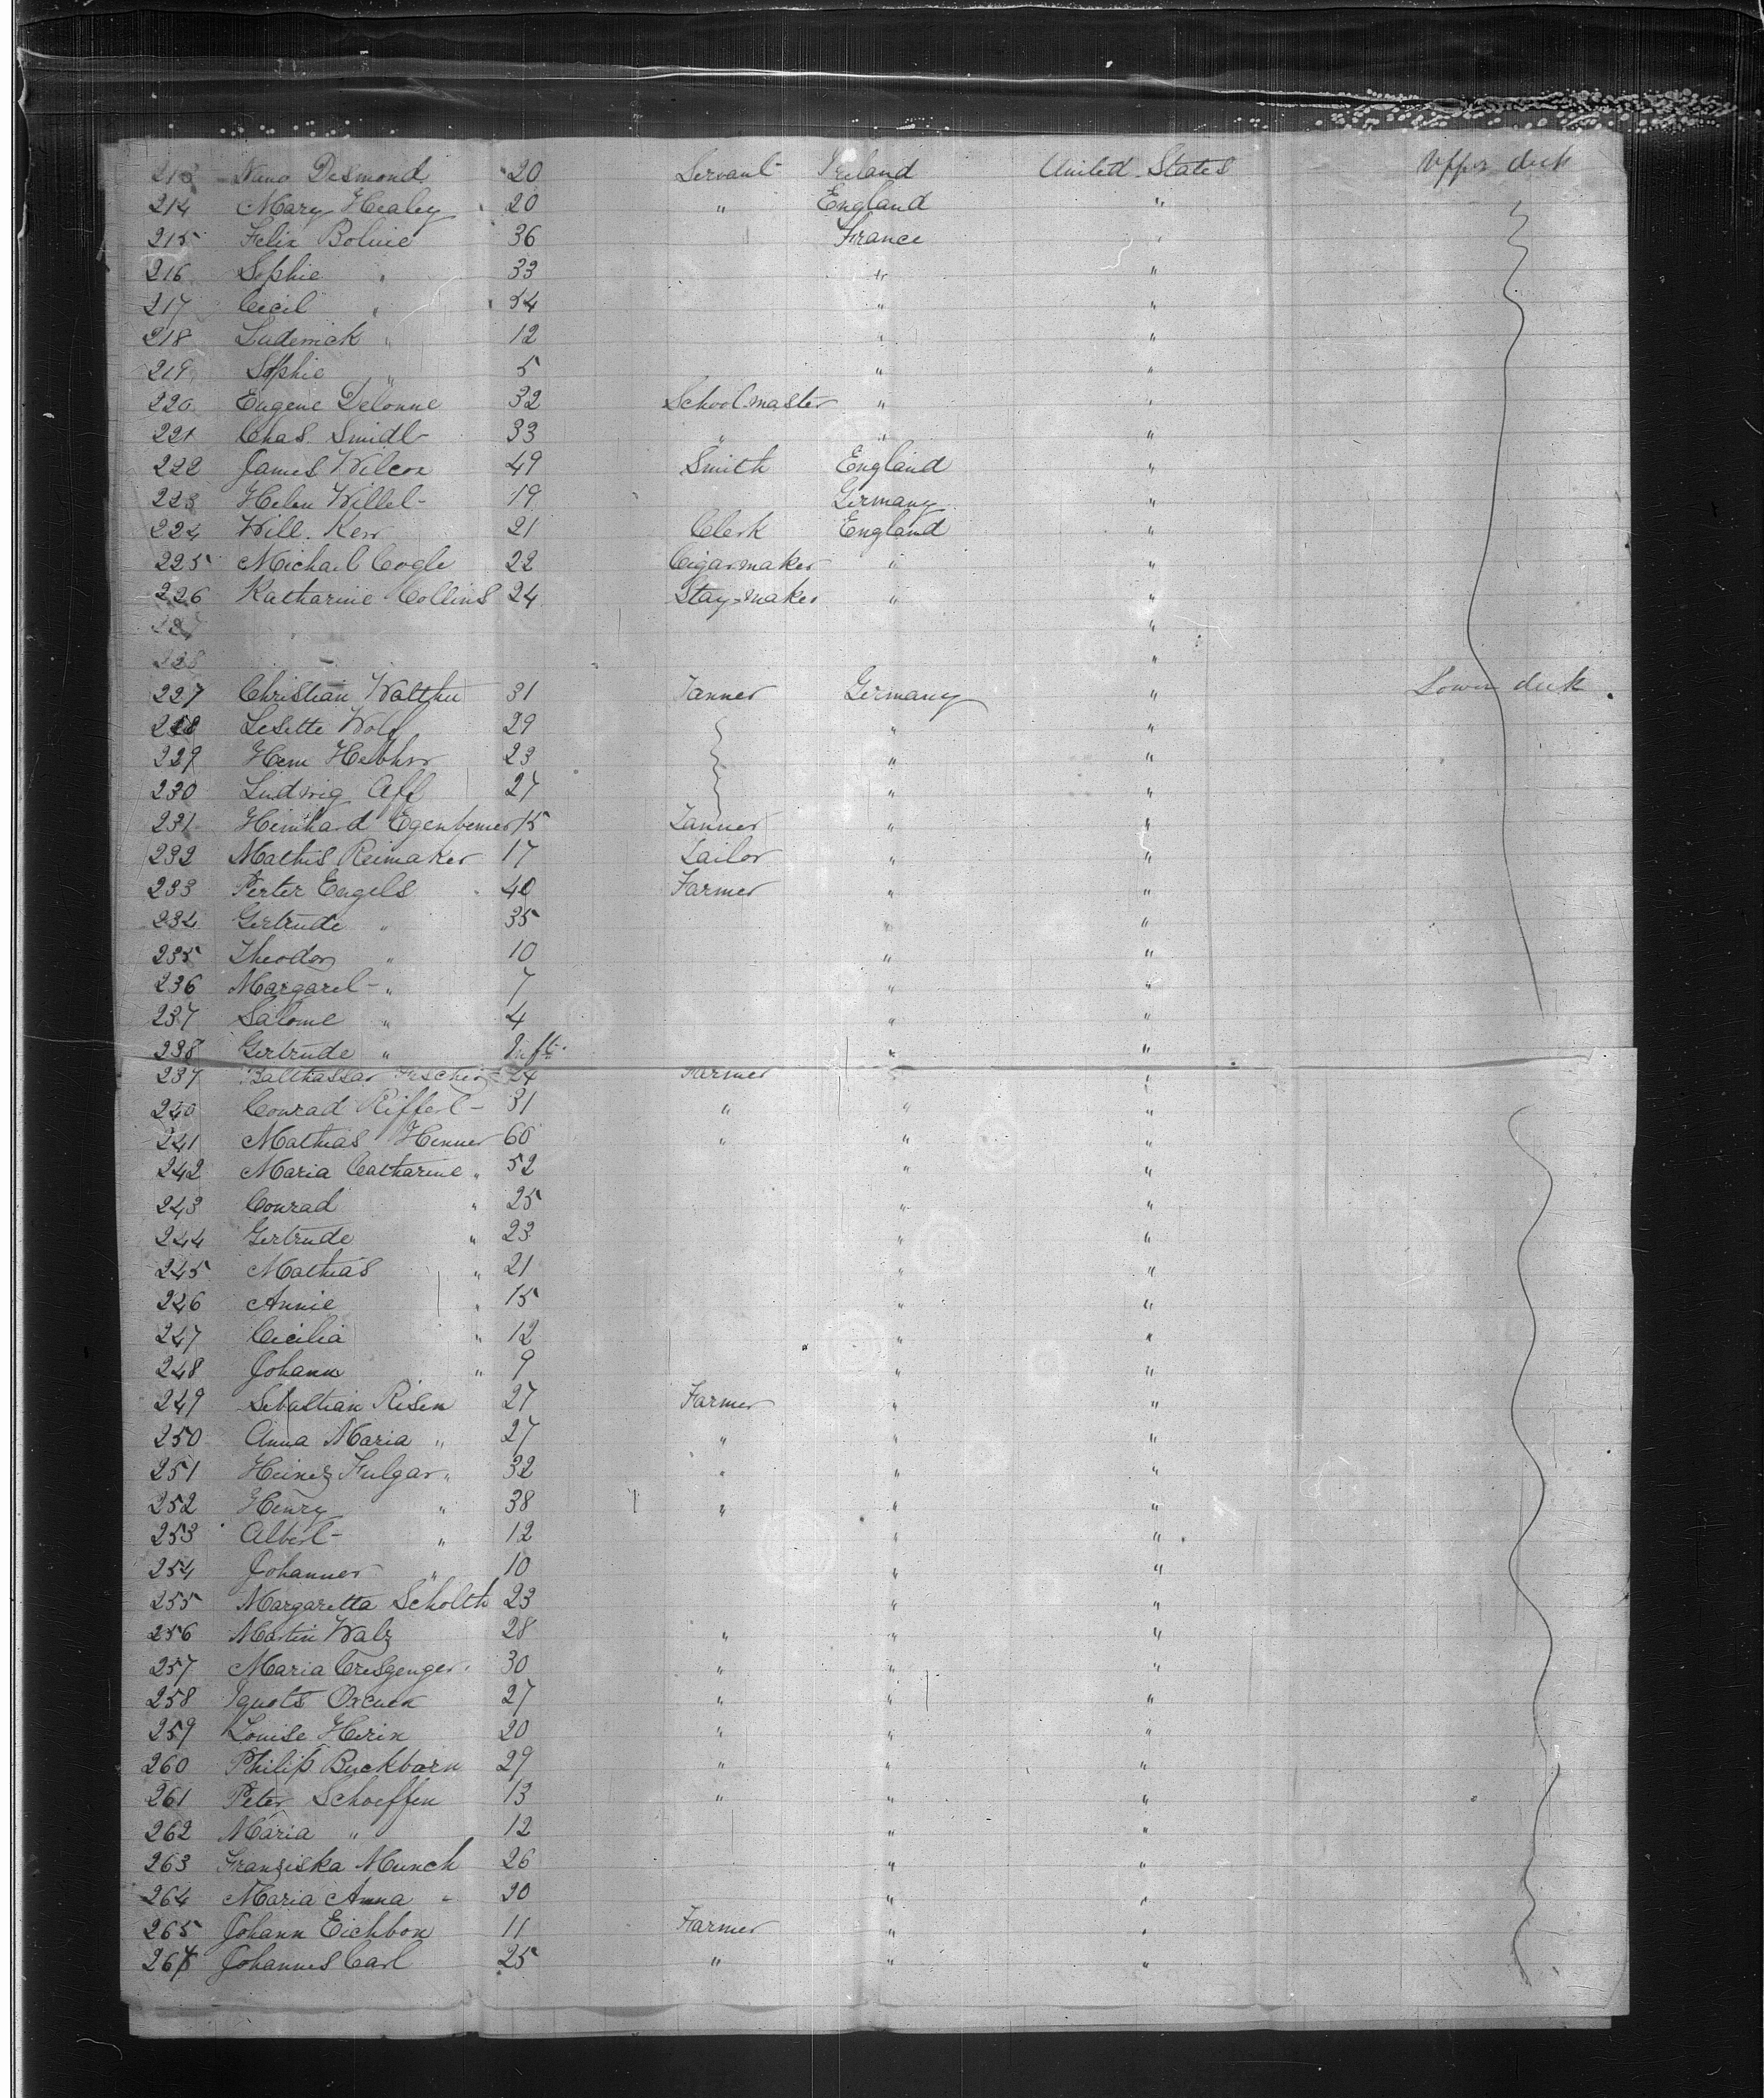 213 Nano Desmond 20 Servant Ireland United States Upper deck
214 Mary Healey 20 " England "
215 Felix Boluie 36 France "
216 Sophie " 33 " "
217 Cecil " 34 " "
218 Luderrick " 12 " "
219 Sophie " 5 " "
220 Eugene Delonne 32 School-master " "
221 Chas. Smidt 33 " " "
222 James Wilcox 49 Smith England "
223 Helen Willet 19 Germany "
224 Will. Kerr 21 Clerk England "
225 Michael Cogle 22 Cigar-maker " "
226 Katharine Collins 24 Stay-maker " "
227 "
228 "
227 Christian Walther 31 Tanner Germany " Lower deck
228 Lesette Wolf 29 " "
229 Hem 23 " "
230 Ludwig Aff 27 " "
231 Heinhard Egenbemer 15 Tanner " "
232 Mathis Reimaker 17 Tailor " "
233 Peter Engels 40 Farmer " "
234 Gertrude " 35 " "
235 Theodor " 10 " "
236 Margaret " 7 " "
237 Salome " 4 " "
238 Gertrude " Inft. " "
237 Balthassar Fischer 24 Farmer " "
240 Conrad Riffert 31 " " "
241 Mathias Henner 60 " " "
242 Maria Catharine " 52 " "
243 Conrad " 25 " "
244 Gertrude " 23 " "
245 Mathias " 21 " "
246 Annie " 15 " "
247 Cicilia " 12 " "
248 Johann " 9 " "
249 Sebastian Risen 27 Farmer " "
250 Anna Maria " 27 " " "
251 Heinez Fulgar " 32 " " "
252 Henry " 38 " " "
253 Albert " 12 " "
254 Johanner " 10 " "
255 Margaretta Scholth 23 " "
256 Martin Walz 28 " " "
257 Maria Cresgenger 30 " " "
258 Ignats 27 " " "
259 Louise Herin 20 " " "
260 Philip Buckbarn 29 " " "
261 Peter Schoeffen 13 " " "
262 Maria " 12 " "
263 Franziska Munch 26 " "
264 Maria Anna " 20 " "
265 Johann Eichbon 11 Farmer " "
267 Johannes Carl 25 " " "